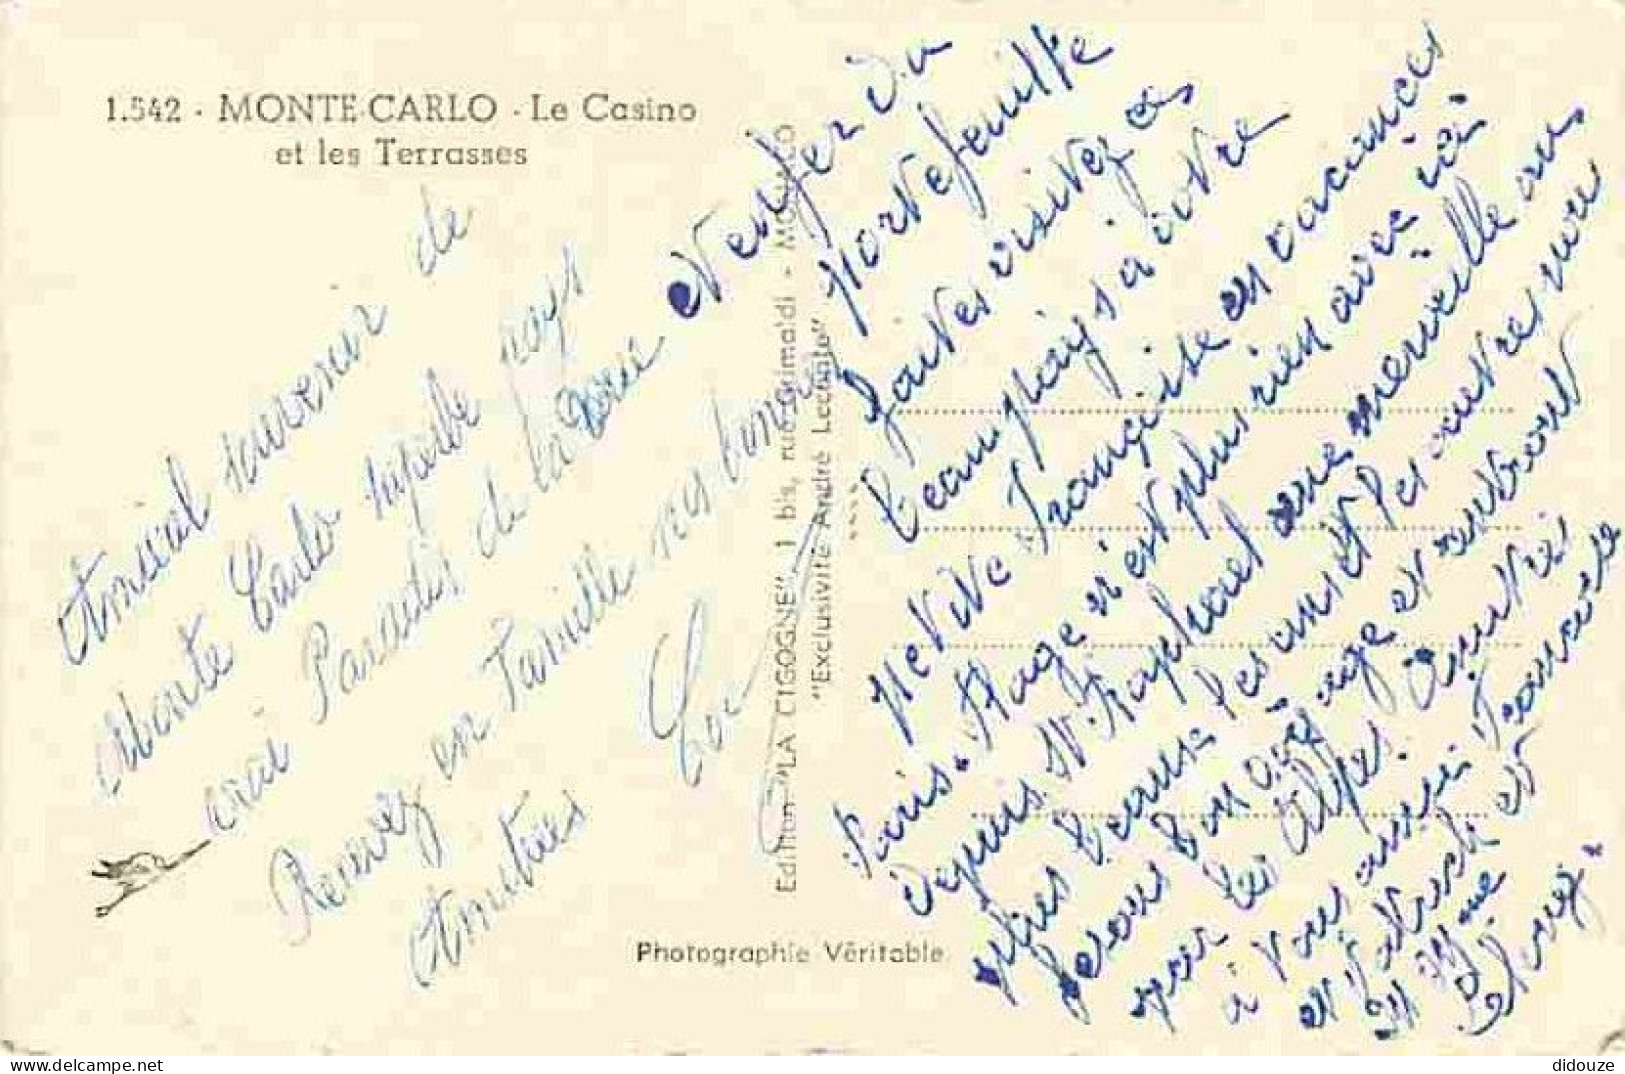 1.542 - MONTE-CARLO - Le Casino
et les Terrasses
Amical souvenir de
Monte Carlo superbe pays
vrai Paradis de la
Revenez en Famille
Amitiés
Edition "LA CIGOGNE", 1 bis, rue Grimaldi - MONACO
"Exclusivité André Leconte"
Photographie Véritable
Venter du
Portefeuille
faites visitez ce
beau pays à votre
petite Française en vacances
Paris. Plage n'est plus rien avec ici
Depuis St Raphael une merveille au
plus beau. Les uns et les autres nou
ferons bon voyage et
pour les Alpes. Amitiés
à vous aussi Francine
et Patrick et
M Mme